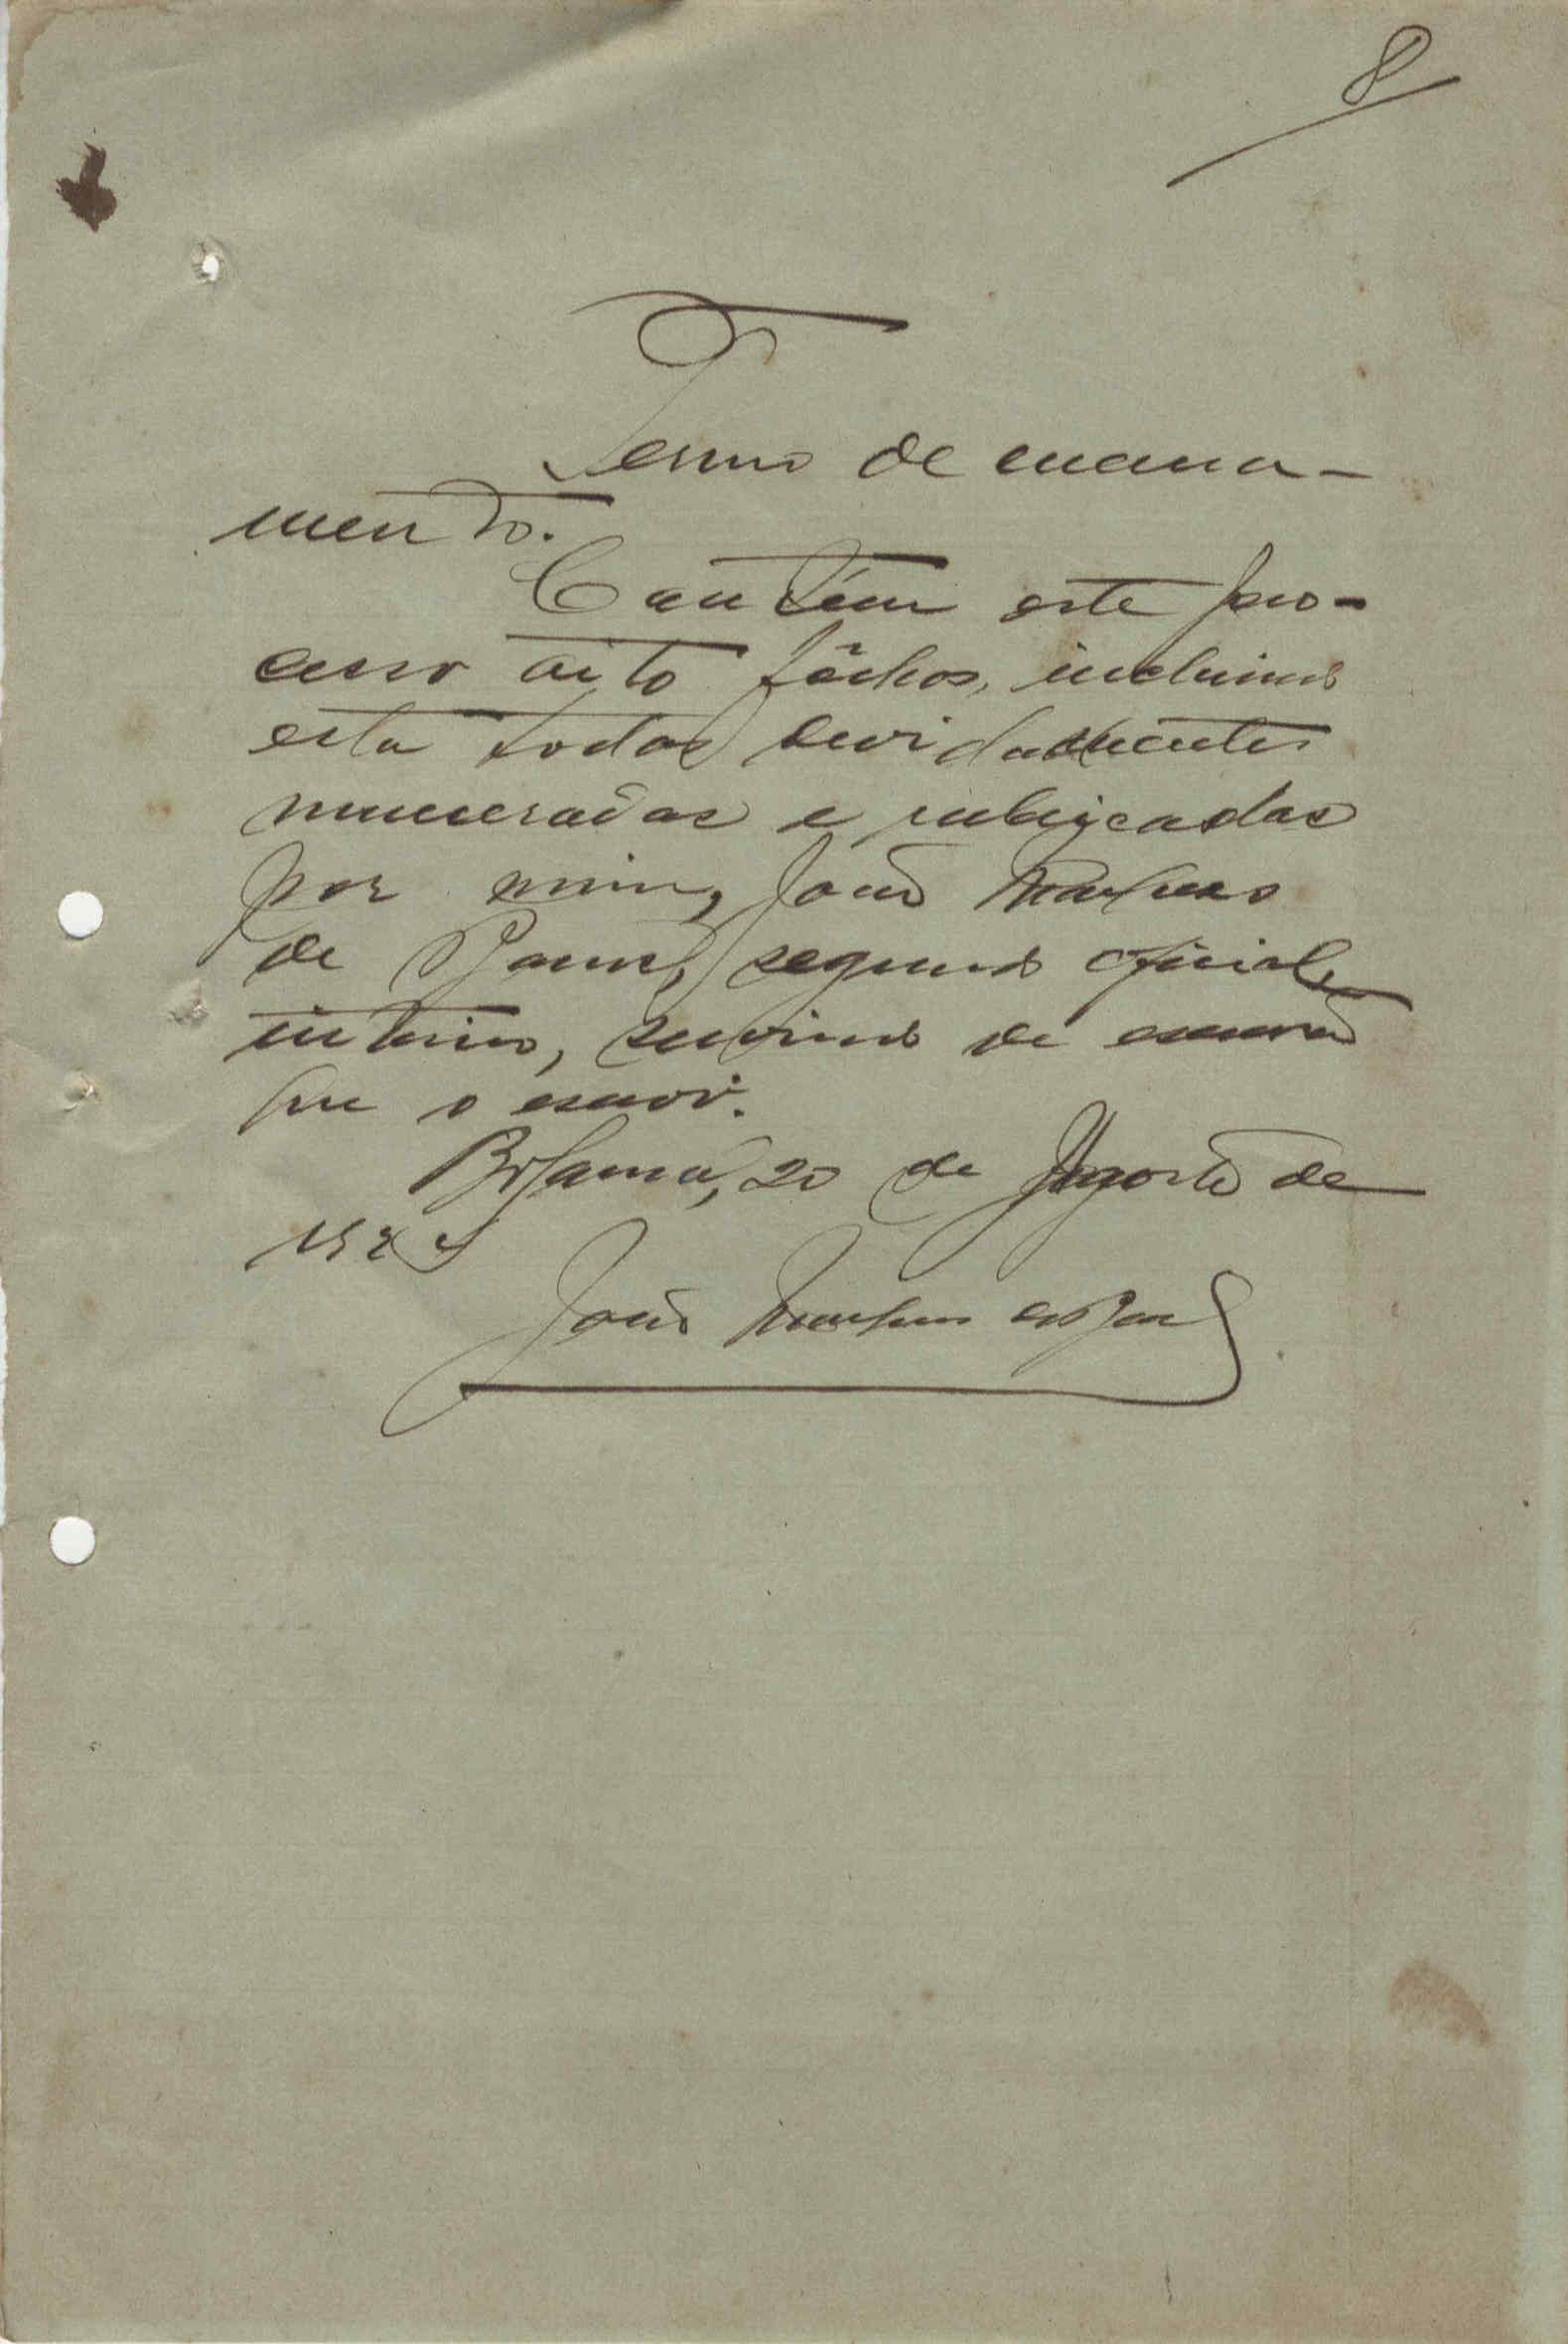 8
Termo de encerra-
mento.
Contém este pro-
cesso oito fôlhas, incluindo
esta todas devidamente
numeradas e rubricadas
por mim, João Martins
de segundo oficial,
interino, servindo de escrivão
que o escrevi.
Bolama, 20 de Agosto de
João Martins